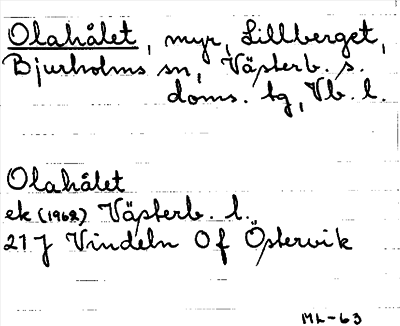 Olahålet, myr, Lillberget,
Bjurholms sn, Västerb. s.
doms. tg, Vb. l.
Olahålet
ek (1962) Västerb. l.
21 J Vindeln 0 f Östervik
ML-63